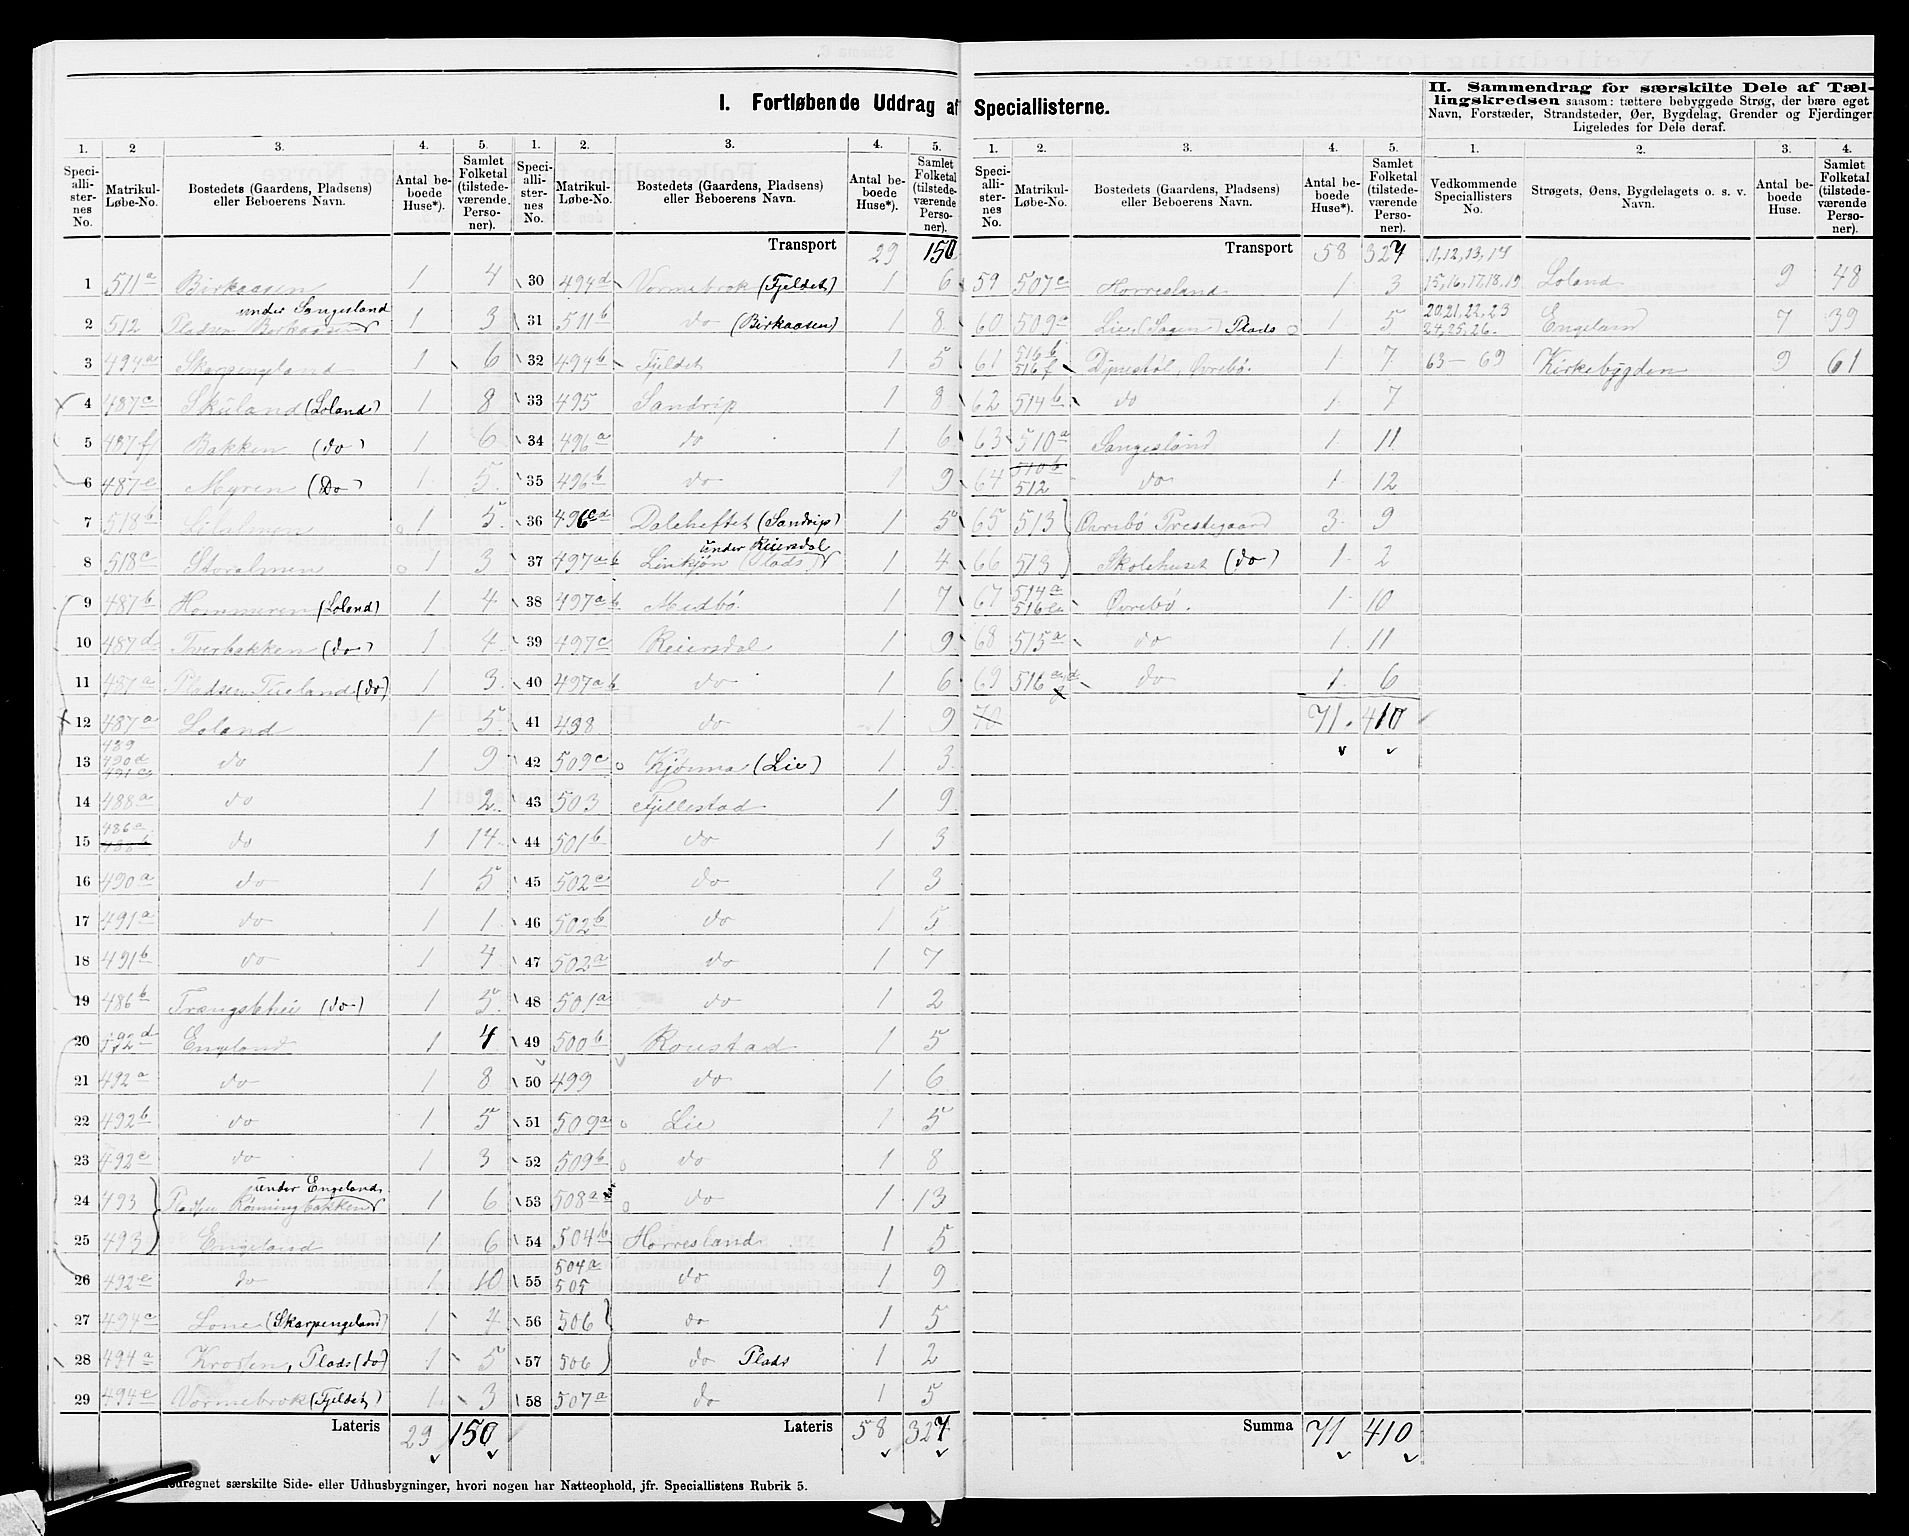 I. Fortløbende Uddrag af Speciallisterne.
II. Sammendrag for særskilte Dele af Tæl-
lingskredsen saasom: tættere bebyggede Strøg, der bære eget
Navn, Forstæder, Strandsteder, Øer, Bygdelag, Grender og Fjerdinger.
Ligeledes for Dele deraf.
1. 2 3. 4. 5.
Speciallisternes No. Matrikul-Løbe-No. Bostedets (Gaardens, Pladsens) eller Beboerens Navn. Antal beboede Huse*). Samlet Folketal (tilstedeværende Personer).
1 511a Birkaasen 1 4
2 512 Pladsen Birkaasen under Sangesland 1 3
3 494a Skarpengland 1 6
4 487c Skuland (Loland) 1 8
5 487f Bakken (do) 1 6
6 487e Myren (Do) 1 5
7 518b Lilalmen 1 5
8 518c Storalmen 1 3
9 487b Hommeren (Loland) 1 4
10 487d Tverbakken (do) 1 4
11 487a Pladsen Tueland (do) 1 3
12 487a Loland 1 5
13 489 490d 491c do 1 9
14 488a do 1 2
15 486a do 1 14
16 490a do 1 5
17 491a do 1 1
18 491b do 1 4
19 486b Trængslehei (do) 1 5
20 492d Engeland 1 4
21 492a do 1 8
22 492b do 1 5
23 492c do 1 3
24 493 Pladsen Rönningbakken under Engeland 1 6
25 493 Engeland 1 6
26 492e do 1 10
27 494c Lone (Skarpengeland) 1 4
28 494a Krossen, Plads (do) 1 5
29 494e Vormebrok (Fjeldet) 1 3
Lateris 29 150
1. 2. 3. 4. 5.
Speciallisternes No. Matrikul-Løbe-No. Bostedets (Gaardens, Pladsens) eller Beboerens Navn. Antal beboede Huse*). Samlet Folketal (tilstedeværende Personer).
Transport 29 150
30 494d Vormebrok (Fjeldet) 1 6
31 511b do (Birkaasen) 1 8
32 494b Fjeldet 1 5
33 495 Sandrip 1 8
34 496a do 1 6
35 496b do 1 9
36 496cd Daleheftet (Sandrip) 1 5
37 497ab Linkjön (Plads) under Reiersdal 1 4
38 497ab Medbö 1 7
39 497c Reiersdal 1 9
40 497ab do 1 6
41 498 do 1 9
42 509c Kjönna (Lie) 1 3
43 503 Fjellestad 1 9
44 501b do 1 3
45 502c do 1 3
46 502b do 1 5
47 502a do 1 7
48 501a do 1 2
49 500b Roustad 1 5
50 499 do 1 6
51 509a Lie 1 5
52 509b do 1 8
53 508a do 1 13
54 504b Horresland 1 5
55 504a 505 do 1 9
56 506 do 1 5
57 506 do Plads 1 2
58 507a do 1 5
Lateris 58 327
1. 2. 3. 4. 5.
Speciallisternes No. Matrikul-Løbe-No. Bostedets (Gaardens, Pladsens) eller Beboerens Navn. Antal beboede Huse*). Samlet Folketal (tilstedeværende Personer).
Transport 58 327
59 507c Horresland 1 3
60 509c Lien (Sagen) Plads 1 5
61 516b 516f Dynestöl, Øvrebö 1 7
62 514b do 1 7
63 510a Sangesland 1 11
64 510b 512 do 1 12
65 513 Øvrebö Prestegaard 3 9
66 513 Skolehuset (do) 1 2
67 514a 516ea Øvrebö 1 10
68 515a do 1 11
69 516cd do 1 6
70 71 410
Summa 71 410
1. 2. 3. 4.
Vedkommende Speciallisters No. Strøgets, Øens, Bygdelagets o. s. v. Navn. Antal beboede Huse. Samlet Folketal (tilstedeværende Personer).
11, 12, 13, 14
15, 16, 17, 18, 19 Loland 9 48
20, 21, 22, 23
24, 25, 26. Engeland 7 39
63 - 69 Kirkebygden 9 61
edregnet særskilte Side- eller Udhusbygninger, hvori nogen har Natteophold, jfr. Speciallistens Rubrik 5.